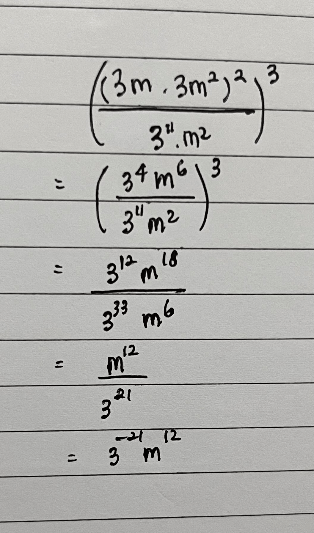 ((3m . 3m²)² / 3¹¹ . m²)³
= (3⁴ m⁶ / 3¹¹ m²)³
= 3¹² m¹⁸ / 3³³ m⁶
= m¹² / 3²¹
= 3⁻²¹ m¹²